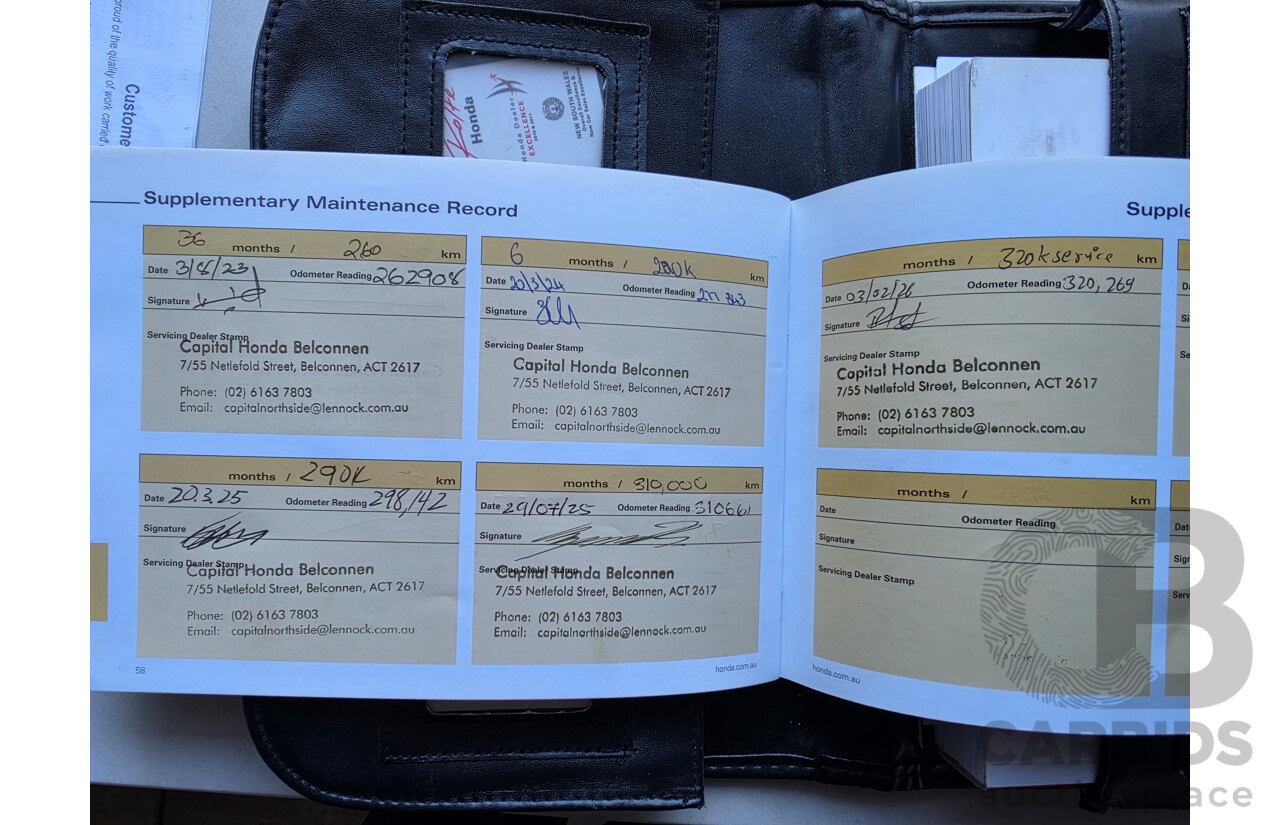 proud of the quality of work carried
Custome
Rolfe
Honda
Honda Dealer
EXCELLENCE
NEW SOUTH WALES
Supplementary Maintenance Record
36 months / 260 km
Date 3/8/23 Odometer Reading 262908
Signature
Servicing Dealer Stamp
Capital Honda Belconnen
7/55 Netlefold Street, Belconnen, ACT 2617
Phone: (02) 6163 7803
Email: capitalnorthside@lennock.com.au
6 months / km
Date 20/3/24 Odometer Reading
Signature
Servicing Dealer Stamp
Capital Honda Belconnen
7/55 Netlefold Street, Belconnen, ACT 2617
Phone: (02) 6163 7803
Email: capitalnorthside@lennock.com.au
months / 290K km
Date 20.3.25 Odometer Reading 298,142
Signature
Servicing Dealer Stamp
Capital Honda Belconnen
7/55 Netlefold Street, Belconnen, ACT 2617
Phone: (02) 6163 7803
Email: capitalnorthside@lennock.com.au
months / 310,000 km
Date 29/07/25 Odometer Reading 310661
Signature
Servicing Dealer Stamp
Capital Honda Belconnen
7/55 Netlefold Street, Belconnen, ACT 2617
Phone: (02) 6163 7803
Email: capitalnorthside@lennock.com.au
58
honda.com.au
Supple
months / 320k service km
Date 03/02/26 Odometer Reading 320,269
Signature
Servicing Dealer Stamp
Capital Honda Belconnen
7/55 Netlefold Street, Belconnen, ACT 2617
Phone: (02) 6163 7803
Email: capitalnorthside@lennock.com.au
months / km
Date
Odometer Reading
Signature
Servicing Dealer Stamp
honda.com.au
D
Si
Se
Dat
Sign
Serv
CB
CARBIDS